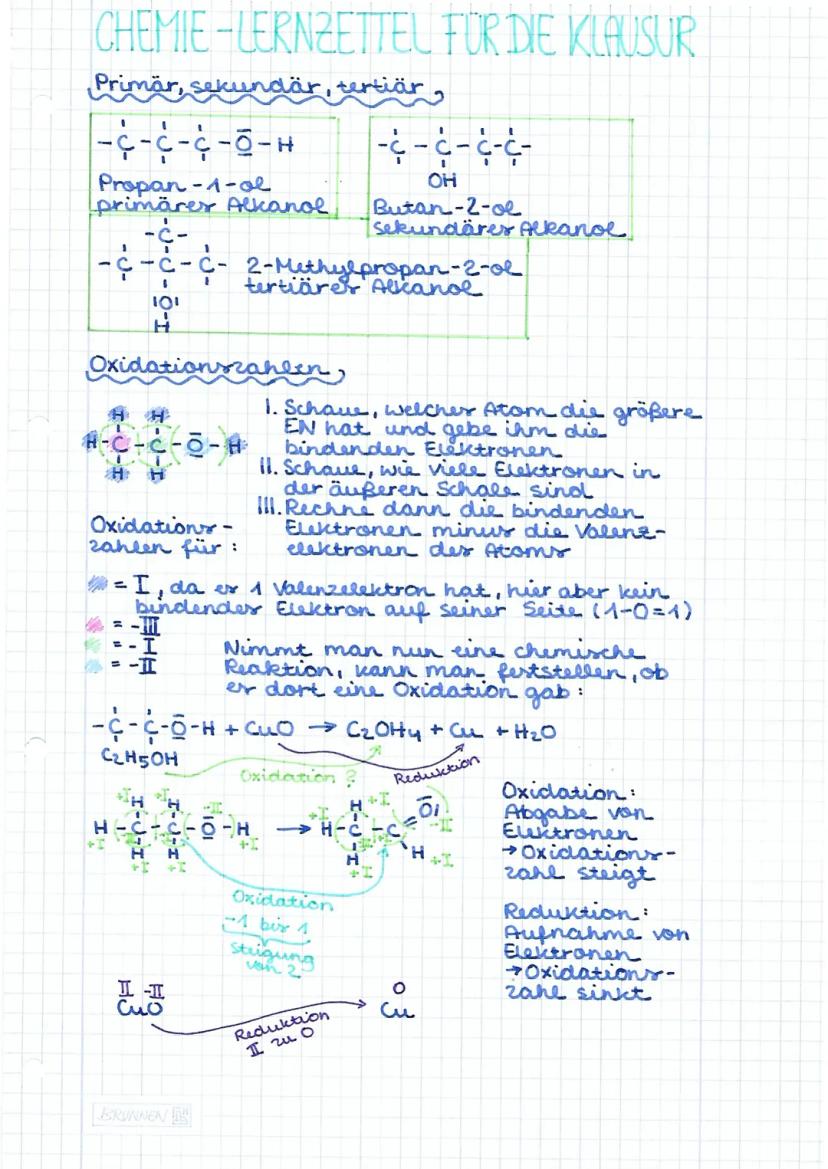 CHEMIE-LERNZETTEL FÜR DIE KLAUSUR
Primär, sekundär, tertiär
-C-C-C-O-H
Propan-1-ol
primäres Alkanol
-C-C-C-C-
OH
Butan-2-ol
sekundäres Alkanol
-C-
-C-C-C-
2-Methylpropan-2-ol
tertiäres Alkanol
|O|
H
Oxidationszahlen
H H
H-C-C-O-H
H H
I. Schaue, welches Atom die größere
EN hat und gebe ihm die
bindenden Elektronen
II. Schaue, wie viele Elektronen in
der äußeren Schale sind
III. Rechne dann die bindenden
Elektronen minus die Valenz-
elektronen des Atoms
Oxidations-
zahlen für:
= I, da es 1 Valenzelektron hat, hier aber kein
bindendes Elektron auf seiner Seite (1-0=1)
= -III
= -I
= -II
Nimmt man nun eine chemische
Reaktion, kann man feststellen, ob
es dort eine Oxidation gab:
-C-C-O-H + CuO → C2OH4 + Cu + H2O
C2H5OH
Oxidation?
Reduktion
+I +I -II
H H
H-C-C-O-H
+I +I
H H
+I +I
→
+I +I
H O|
-II
H-C-C
H H +I
+I
Oxidation
-1 bis 1
Steigung
von 2
Oxidation:
Abgabe von
Elektronen
→ Oxidations-
zahl steigt
Reduktion:
Aufnahme von
Elektronen
→ Oxidations-
zahl sinkt
II -II
CuO
Reduktion
II zu 0
0
Cu
BRUNNEN